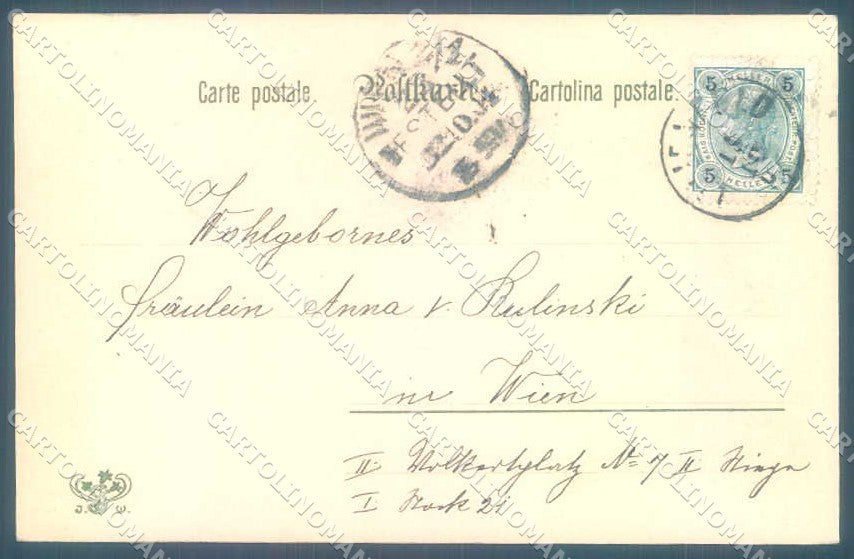 Carte postale Postkarte Cartolina postale.
5 5
HELLER
5 HELLER 5
Wohlgebornes
Fräulein Anna v. Rulinski
in Wien
II Volkertplatz № 7 II Stiege
I Stock 21
J. W.
CARTOLINOMANIA